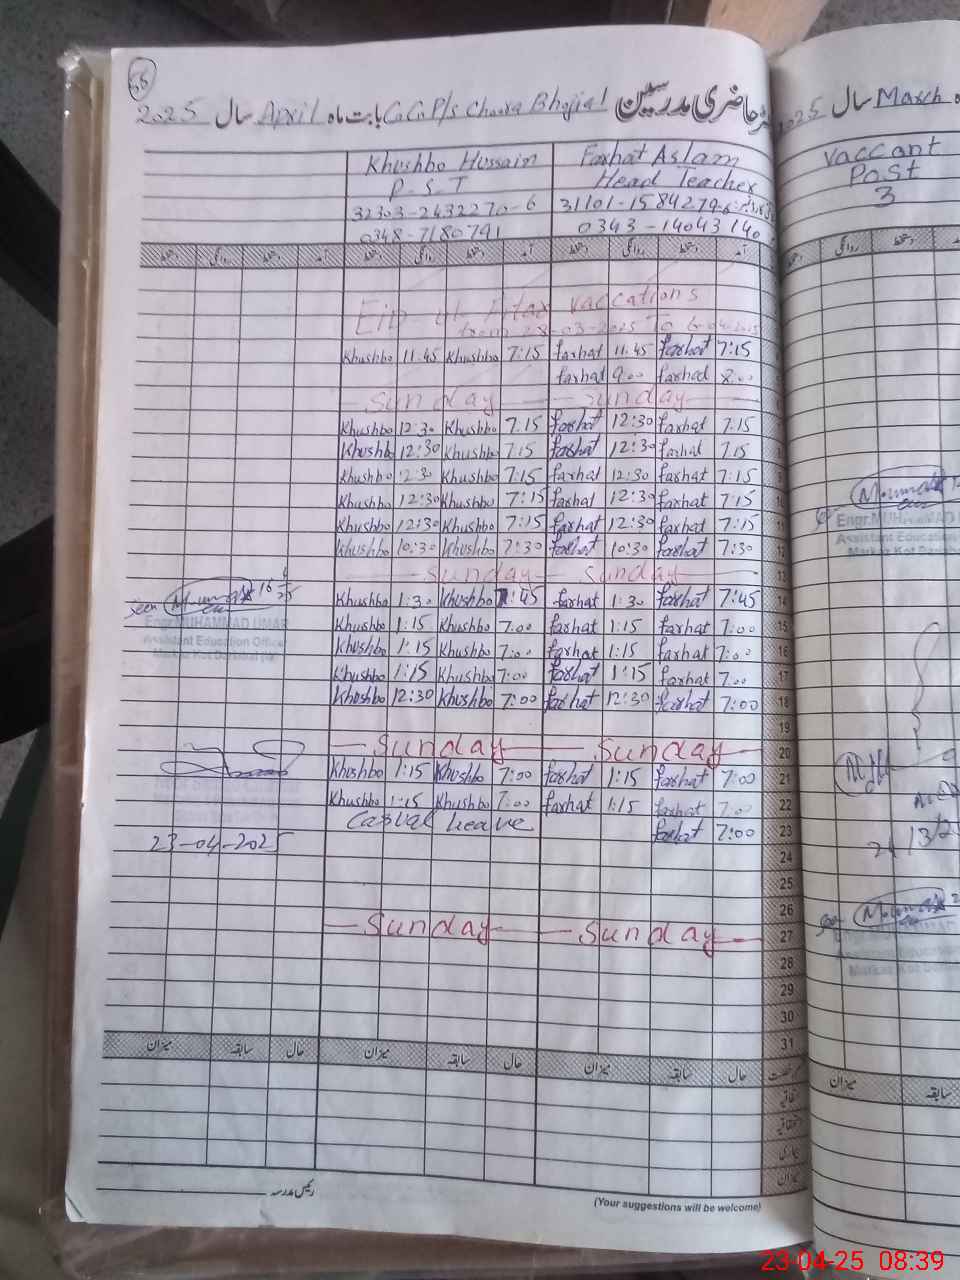 56
رجسٹر حاضری مدرسین G.G.P/S Choora Bhojia 1 بابت ماہ April سال 2025
Khushbo Hussain Farhat Aslam
P.S.T Head Teacher
32303-2432270-6 31101-1584279
0348-7180791 0343-1404314
دستخط روانگی دستخط آمد دستخط روانگی دستخط آمد دستخط روانگی دستخط آمد
Eid-ul-Fitar vaccations
from 28-03-2025 To 6-04-2025
Khushbo 11.45 Khushbo 7:15 farhat 11.45 farhat 7:15
farhat 9.00 farhad 8.00
Sunday Sunday
Khushbo 12:30 Khushbo 7:15 farhat 12:30 farhat 7.15
Khushb 12:30 Khushbo 7:15 farhat 12:30 farhat 7.15
Khushbo 12:30 Khushbo 7:15 farhal 12:30 farhat 7:15
Khushbo 12:30 Khushbo 7:15 farhat 12:30 farhat 7:15 10
Khushbo 12:30 Khushbo 7:15 farhat 12:30 farhat 7:15 11
Khushbo 10:30 Khushbo 7:30 farhat 10:30 farhat 7:30 12
Sunday Sunday 13
Khushbo 1:30 Khushbo 7:45 farhat 1:30 farhat 7:45 14
Khushbo 1:15 Khushbo 7:00 farhat 1:15 farhat 7:00 15
Khushbo 1:15 Khushbo 7:00 farhat 1:15 farhat 7:00 16
Khushbo 1:15 Khushbo 7:00 farhat 1:15 farhat 7.00 17
Khushbo 12:30 Khushbo 7:00 farhat 12:30 farhat 7:00 18
19
Sunday Sunday 20
Khushbo 1:15 Khushbo 7:00 farhat 1:15 farhat 7:00 21
Khushbo 1:15 Khushbo 7:00 farhat 1:15 farhat 7:00 22
Casual Leave farhat 7:00 23
24
25
26
Sunday Sunday 27
28
29
30
31
seen
16 4 25
Engr.MUHAMMAD UMAR
Assistant Education Officer
23-04-2025
میزان سابقہ حال میزان سابقہ حال میزان سابقہ حال
اتفاقیہ
بیماری
میزان
رئیس مدرسہ
(Your suggestions will be welcome)
March سال 2025
Vaccant
Post
3
روانگی دستخط
Engr.MUHAMMAD U
Assistant Education
Markaz Kot
میزان سابقہ
23-04-25 08:39